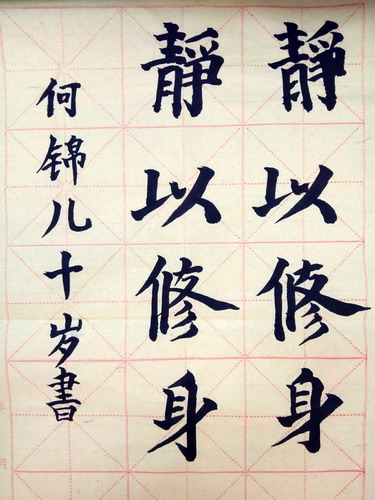 靜以修身
靜以修身
何锦儿十岁書